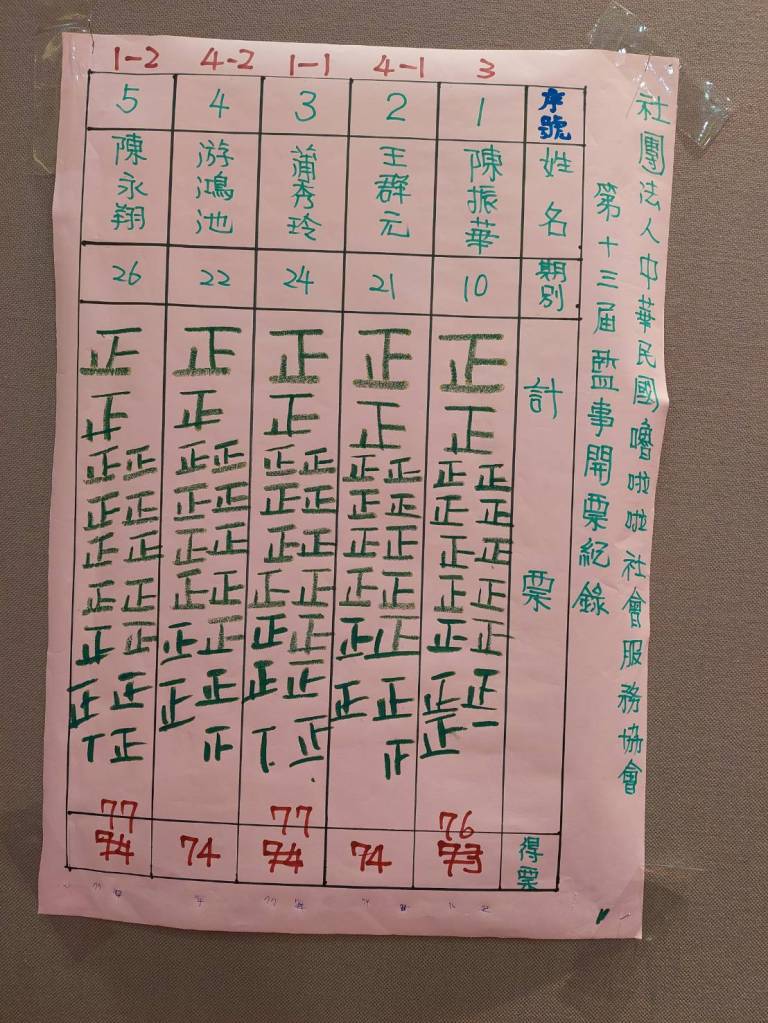 社團法人中華民國嚕啦啦社會服務協會
第十三屆監事開票紀錄
3 4-1 1-1 4-2 1-2
序號 1 2 3 4 5
姓名 陳振華 王群元 蒲秀玲 游鴻池 陳永翔
期別 10 21 24 22 26
計票
正 正 正 正 正
正 正 正 正 正
正正 正正 正正 正正 正正
正正 正正 正正 正正 正正
正正 正正 正正 正正 正正
正正 正正 正正 正正 正正
正正 正正 正正 正正 正正
正正 正正 正正 正正 正正
76 77 77
得票 73 74 74 74 74